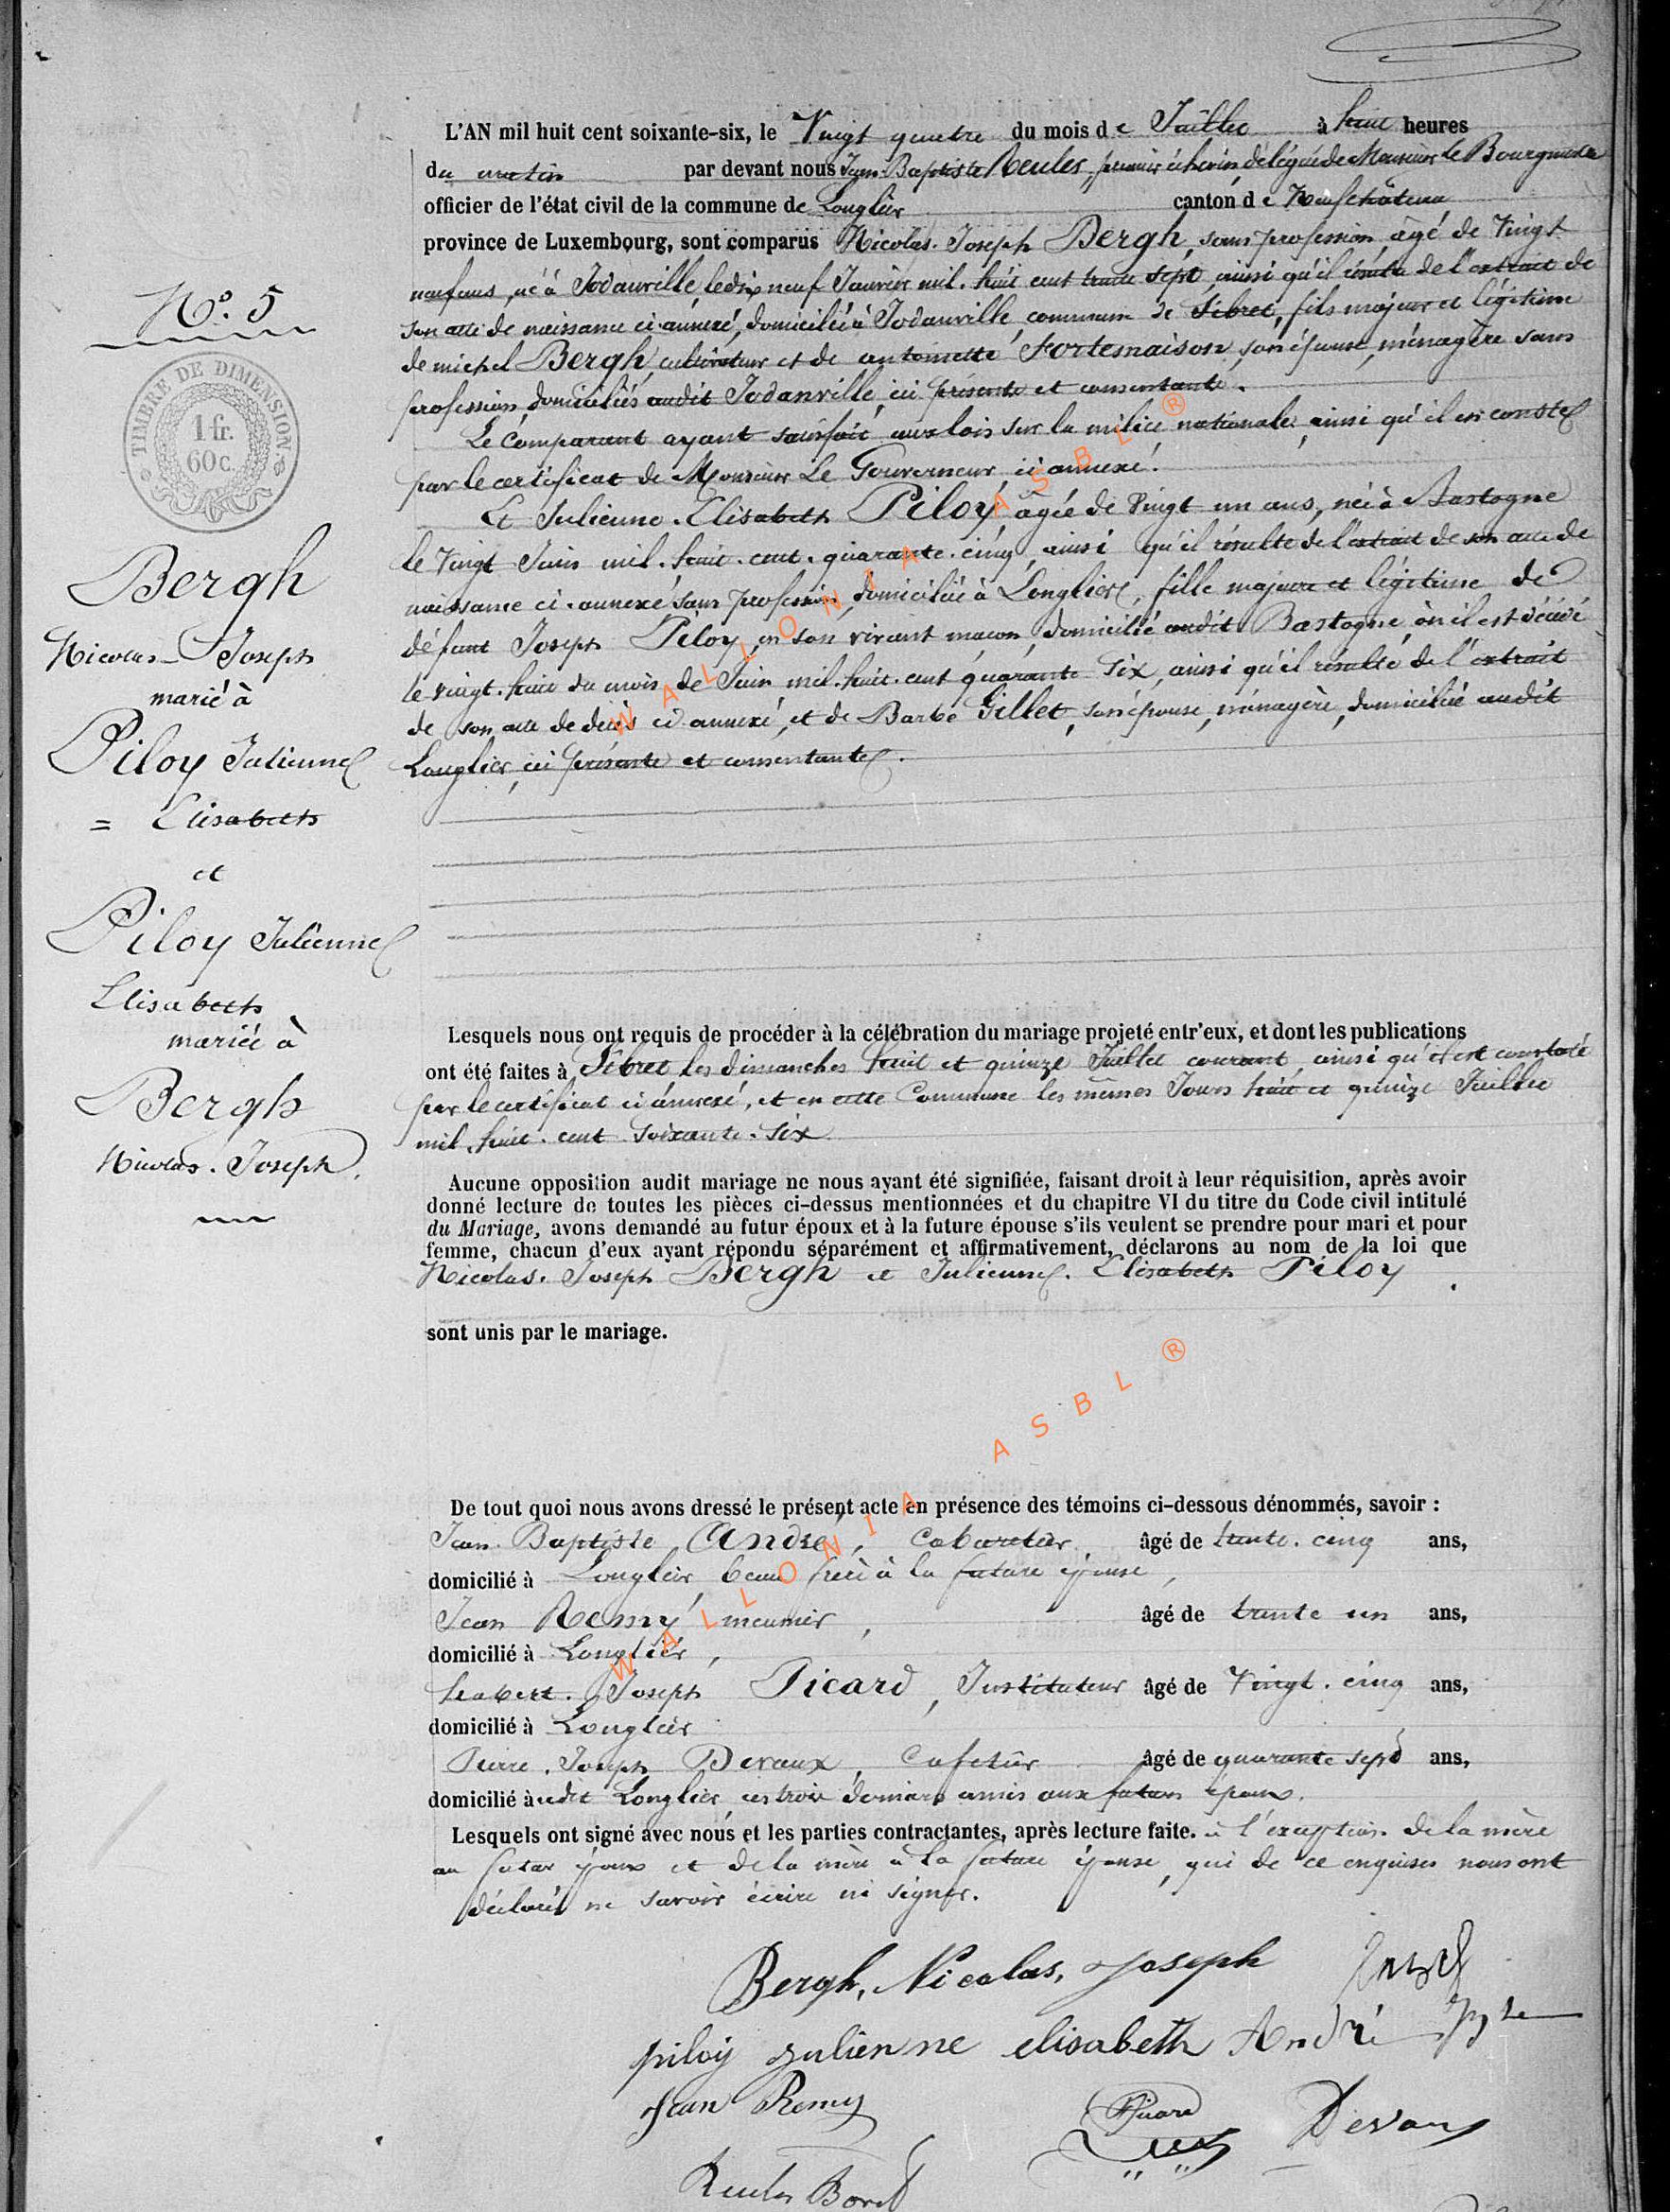 L'AN mil huit cent soixante-six, le Vingt quatre du mois de Juillet à huit heures
du matin par devant nous Jean-Baptiste Reuler, premier échevin, délégué de Monsieur le Bourgmestre
officier de l'état civil de la commune de Longlier canton de Neufchâteau
province de Luxembourg, sont comparus Nicolas-Joseph Bergh, sans profession, âgé de Vingt
neuf ans, né à Jodanville, le dix neuf Janvier mil huit cent trente sept, ainsi qu'il résulte de l'extrait de
son acte de naissance ci-annexé, domicilié à Jodanville, commune de Sibret, fils majeur et légitime
de michel Bergh, cultivateur et de antoinette Fortemaison, son épouse, ménagère sans
profession, domiciliés audit Jodanville, ici présents et consentants.
Le comparant ayant satisfait aux lois sur la milice nationale, ainsi qu'il en conste
par le certificat de Monsieur Le Gouverneur, ci annexé.
Et Julienne-Elisabeth Piloy, agée de vingt un ans, née à Bastogne
le vingt Juin mil-huit-cent-quarante-cinq, ainsi qu'il résulte de l'extrait de son acte de
naissance ci-annexé sans profession, domiciliée à Longlier, fille majeure et légitime de
défunt Joseph Piloy, en son vivant maçon, domicilié audit Bastogne, où il est décédé
le vingt-huit du mois de Juin mil-huit-cent quarante Six, ainsi qu'il résulte de l'extrait
de son acte de décès ci annexé, et de Barbe Gillet, son épouse, ménagère, domiciliée audit
Longlier, ici présente et consentante.
No. 5
TIMBRE DE DIMENSION.
1 fr.
60 c.
Bergh
Nicolas-Joseph
marié à
Piloy Julienne
= Elisabeth
et
Piloy Julienne
Elisabeth
mariée à
Bergh
Nicolas-Joseph.
Lesquels nous ont requis de procéder à la célébration du mariage projeté entr'eux, et dont les publications
ont été faites à Sibret les dimanches huit et quinze Juillet courant, ainsi qu'il est constaté
par le certificat ci annexé, et en cette Commune les mêmes Jours huit et quinze Juillet
mil-huit-cent-soixante-six
Aucune opposition audit mariage ne nous ayant été signifiée, faisant droit à leur réquisition, après avoir
donné lecture de toutes les pièces ci-dessus mentionnées et du chapitre VI du titre du Code civil intitulé
du Mariage, avons demandé au futur époux et à la future épouse s'ils veulent se prendre pour mari et pour
femme, chacun d'eux ayant répondu séparément et affirmativement, déclarons au nom de la loi que
Nicolas-Joseph Bergh et Julienne-Elisabeth Piloy.
sont unis par le mariage.
De tout quoi nous avons dressé le présent acte en présence des témoins ci-dessous dénommés, savoir :
Jean-Baptiste André, Cabaretier âgé de trente-cinq ans,
domicilié à Longlier beau frère à la future épouse,
Jean Remy meunier, âgé de trente un ans,
domicilié à Longlier,
hubert-Joseph Picard, Instituteur âgé de Vingt-cinq ans,
domicilié à Longlier
Pierre-Joseph Devaux, Cafetier âgé de quarante sept ans,
domicilié audit Longlier, ces trois derniers amis aux futurs époux.
Lesquels ont signé avec nous et les parties contractantes, après lecture faite. à l'exception de la mère
au futur époux et de la mère à la future épouse, qui de ce enquises nous ont
déclaré ne savoir écrire ni signer.
Bergh, Nicolas, Joseph
piloy julienne elisabeth André
Jean Remy Picard Devaux
WALLONIA ASBL ®
WALLONIA ASBL ®